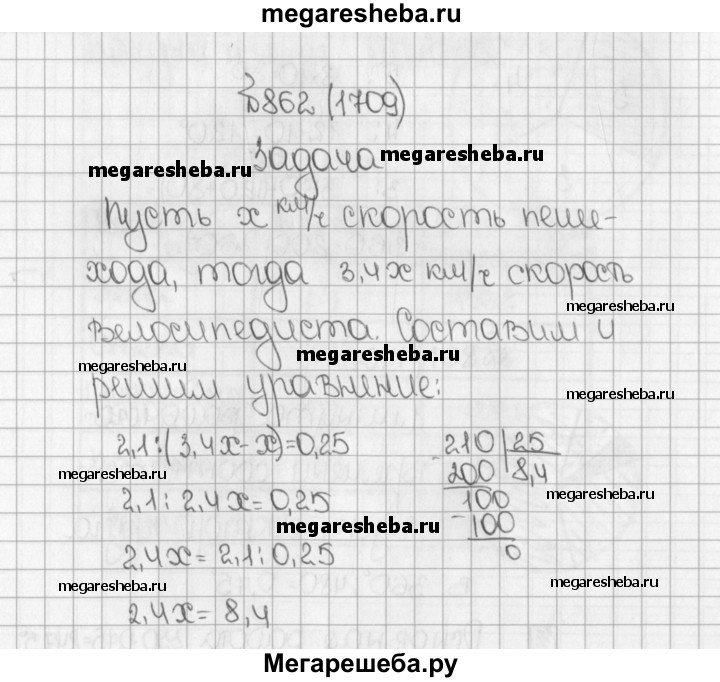 megaresheba.ru
№862 (1709)
Задача megaresheba.ru
megaresheba.ru
Пусть x км/ч скорость пеше-
хода, тогда 3,4x км/ч скорость
megaresheba.ru
велосипедиста. Составим и
megaresheba.ru
megaresheba.ru
решим уравнение: megaresheba.ru
2,1:(3,4x-x)=0,25
210 25
- 200 8,4
megaresheba.ru
100
megaresheba.ru
2,1: 2,4x=0,25
megaresheba.ru
- 100
0
2,4x= 2,1:0,25
megaresheba.ru
megaresheba.ru
2,4x= 8,4
Мегарешеба.ру